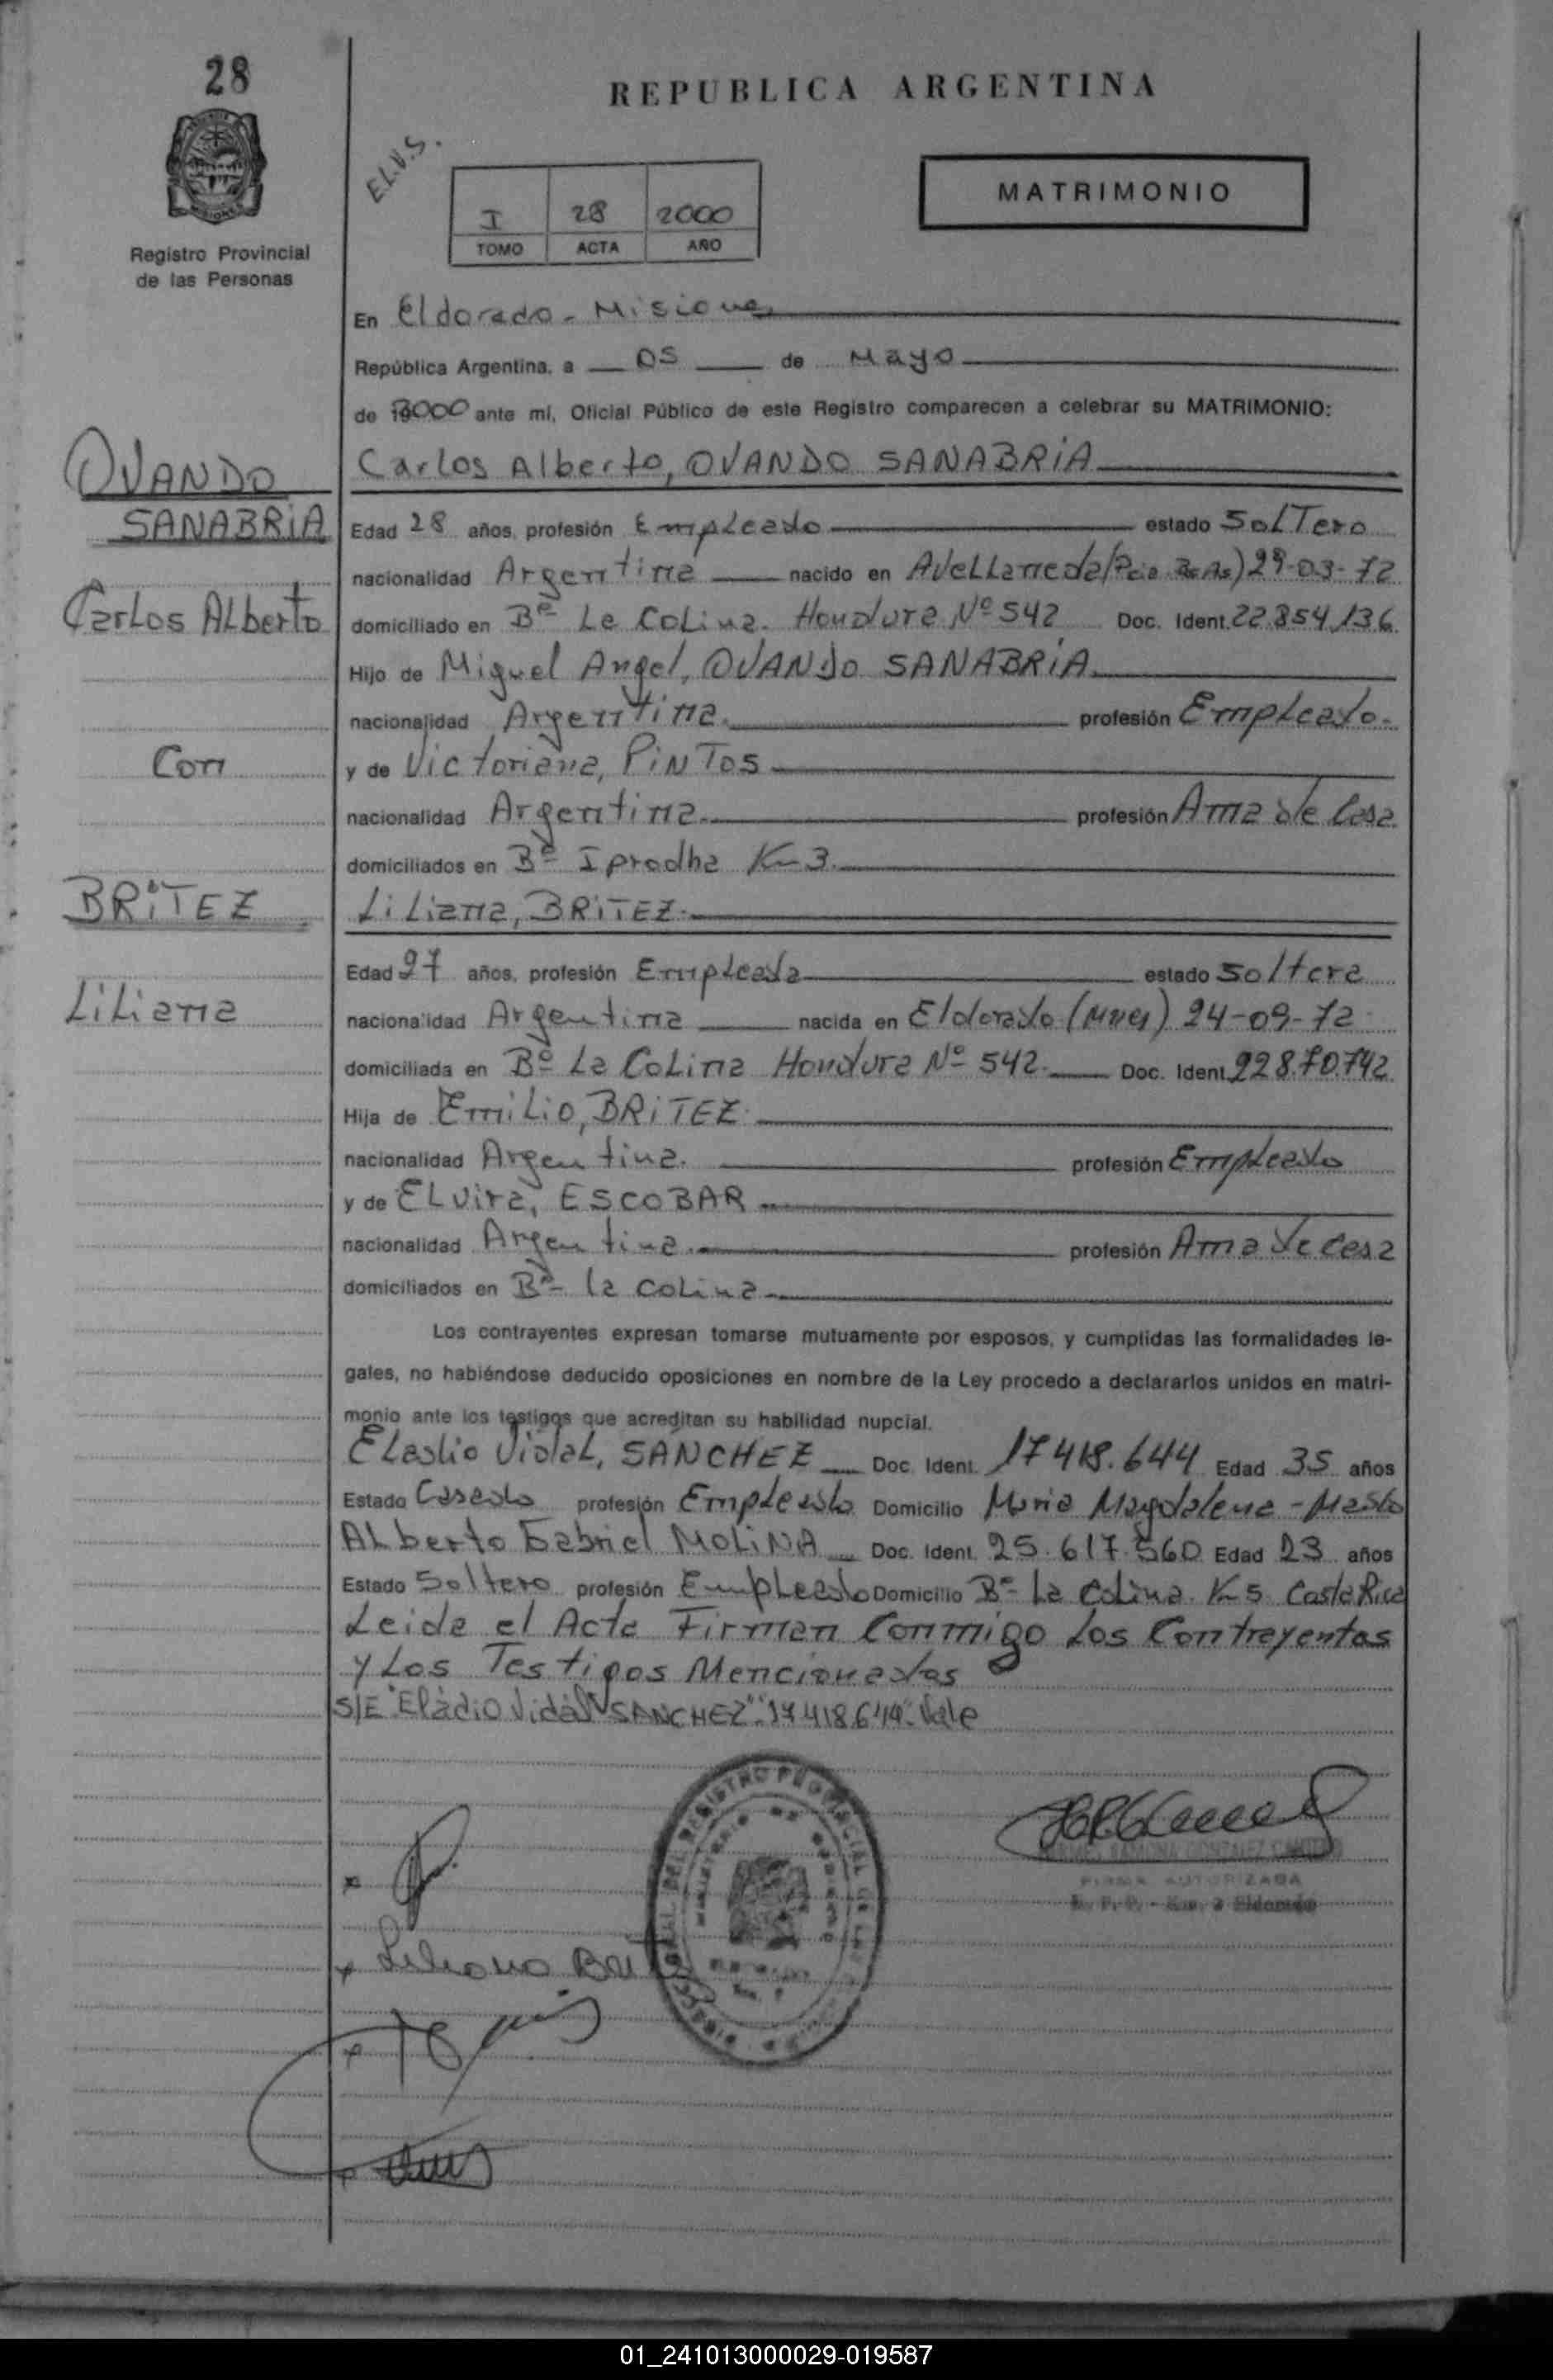 28
REPUBLICA ARGENTINA
E.L.V.S.
MATRIMONIO
I 28 2000
TOMO ACTA AÑO
Registro Provincial
de las Personas
En Eldorado - Misiones
República Argentina, a 05 de Mayo
de 2000 ante mí, Oficial Público de este Registro comparecen a celebrar su MATRIMONIO:
OVANDO
SANABRIA
Carlos Alberto
Con
BRITEZ
Liliana
Carlos Alberto, OVANDO SANABRIA
Edad 28 años, profesión Empleado estado Soltero
nacionalidad Argentina nacido en Avellaneda (Pcia Bs As) 29-03-72
domiciliado en Bº La Colina. Hondura Nº 542 Doc. Ident. 22.854.136
Hijo de Miguel Angel, OVANDO SANABRIA
nacionalidad Argentina. profesión Empleado.
y de Victoriana, PINTOS
nacionalidad Argentina. profesión Ama de Casa.
domiciliados en Bº Iprodha Km 3.
Liliana, BRITEZ.
Edad 27 años, profesión Empleada estado Soltera
nacionalidad Argentina nacida en Eldorado (Mnes) 24-09-72
domiciliada en Bº La Colina Hondura Nº 542. Doc. Ident. 22870.742
Hija de Emilio, BRITEZ.
nacionalidad Argentina. profesión Empleado
y de Elvira, ESCOBAR
nacionalidad Argentina. profesión Ama de Casa
domiciliados en Bº la Colina
Los contrayentes expresan tomarse mutuamente por esposos, y cumplidas las formalidades le-
gales, no habiéndose deducido oposiciones en nombre de la Ley procedo a declararlos unidos en matri-
monio ante los testigos que acreditan su habilidad nupcial.
Eladio Vidal, SANCHEZ Doc. Ident. 17418.644 Edad 35 años
Estado Casado profesión Empleado Domicilio Maria Magdalena - Mado
Alberto Gabriel MOLINA Doc. Ident. 25.617.560 Edad 23 años
Estado Soltero profesión Empleado Domicilio Bº La Colina. Km 5 Costa Rica
Leida el Acta Firman Conmigo Los Contrayentes
y Los Testigos Mencionados
S/E "Eladio Vidal SANCHEZ" "17418644" Vale
Liliana Brit
REGISTRO PROVINCIAL DE LAS
RAMONA GONZALEZ
FIRMA AUTORIZADA
R. P. P. - Km. 2 Eldorado
01_241013000029-019587